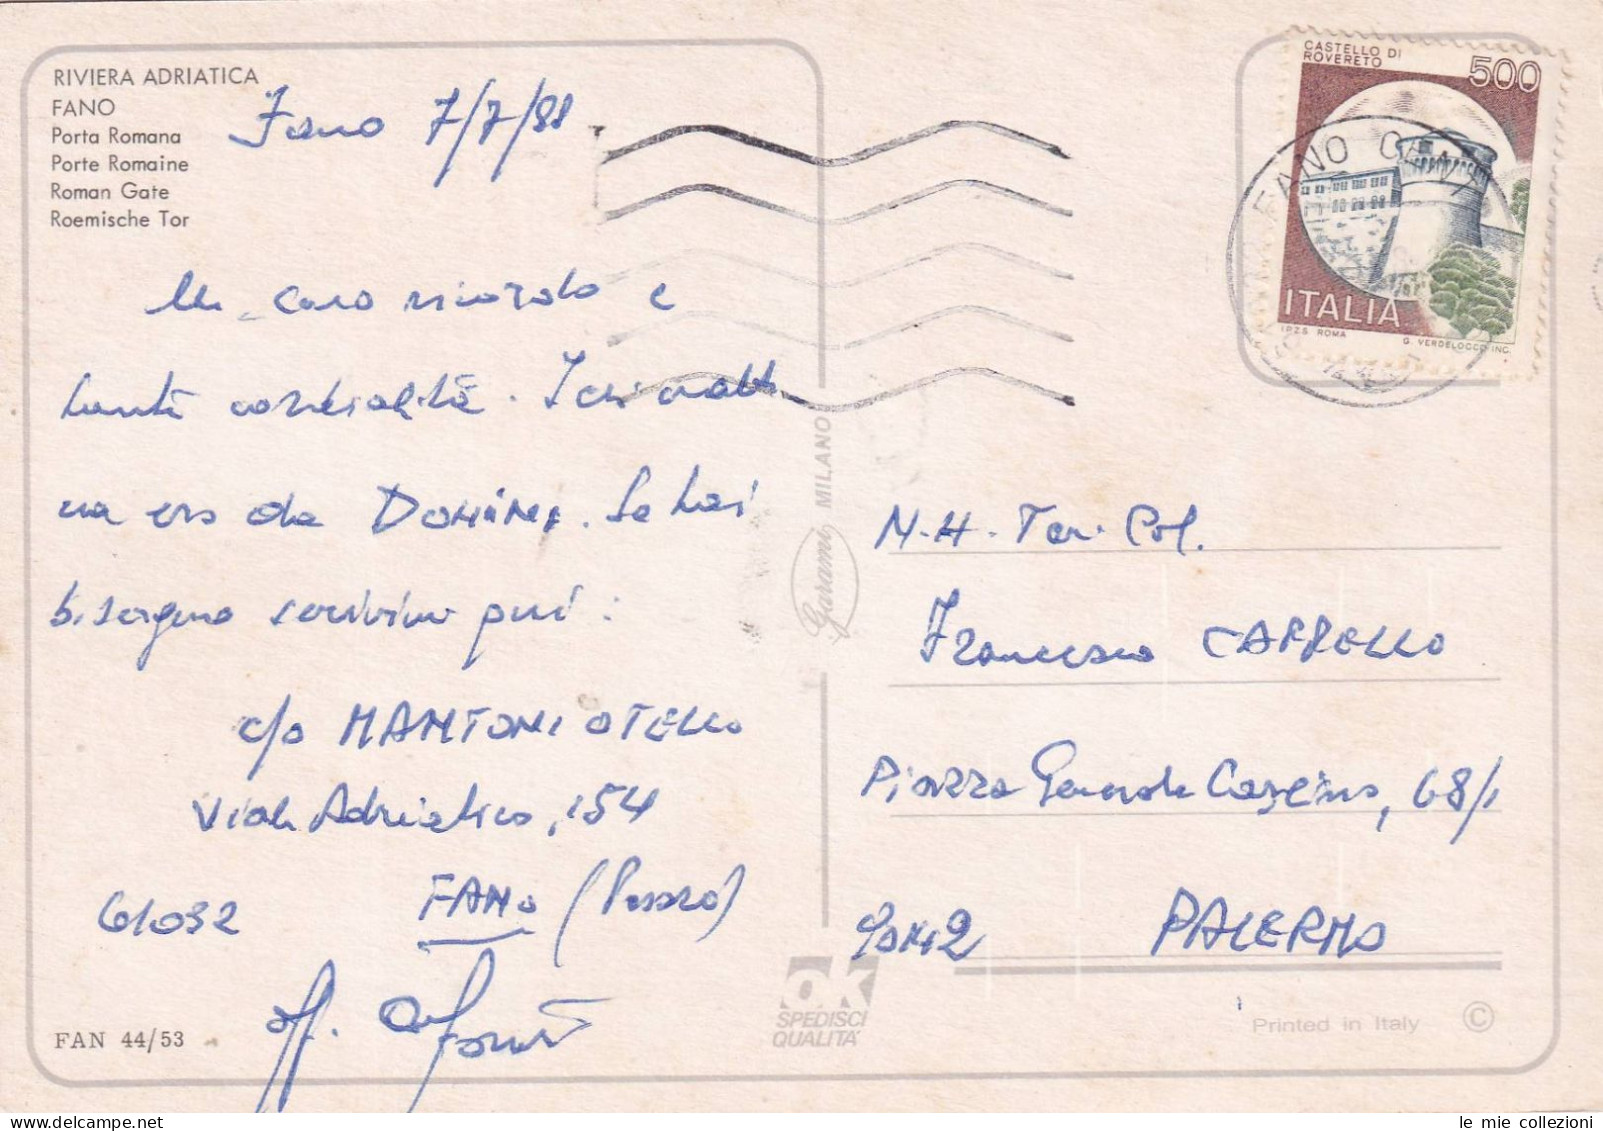 RIVIERA ADRIATICA
FANO
Porta Romana
Porte Romaine
Roman Gate
Roemische Tor
Fano 7/7/88
Un caro ricordo e
tanta cordialità. Ieri matti
na ero da DOMINI. Se hai
bisogno scrivimi qui:
c/o MANTONI OTELLO
Viale Adriatico, 154
61032 FANO (Pesaro)
aff.
FAN 44/53
Garami MILANO
ok
SPEDISCI
QUALITÀ
CASTELLO DI
ROVERETO
500
ITALIA
I.P.Z.S. ROMA
G. VERDELOCCO INC.
FANO
N.H. Ten. Col.
Francesco CAPPELLO
Piazza Generale Cascino, 68/1
90142 PALERMO
Printed in Italy ©
le mie collezioni